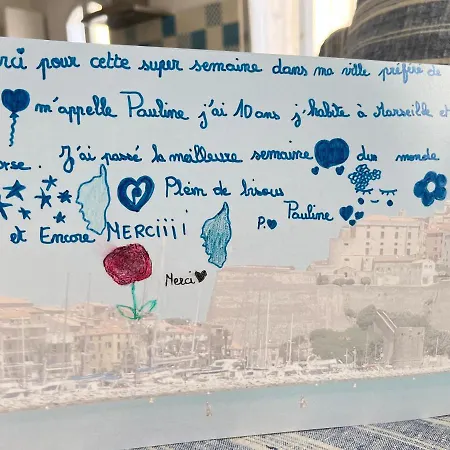 rci pour cette super semaine dans ma ville préférée de
m'appelle Pauline j'ai 10 ans j'habite à Marseille et
orse. J'ai passé la meilleure semaine du monde
Plein de bisous
Pauline
P.
et Encore MERCiiii
Merci